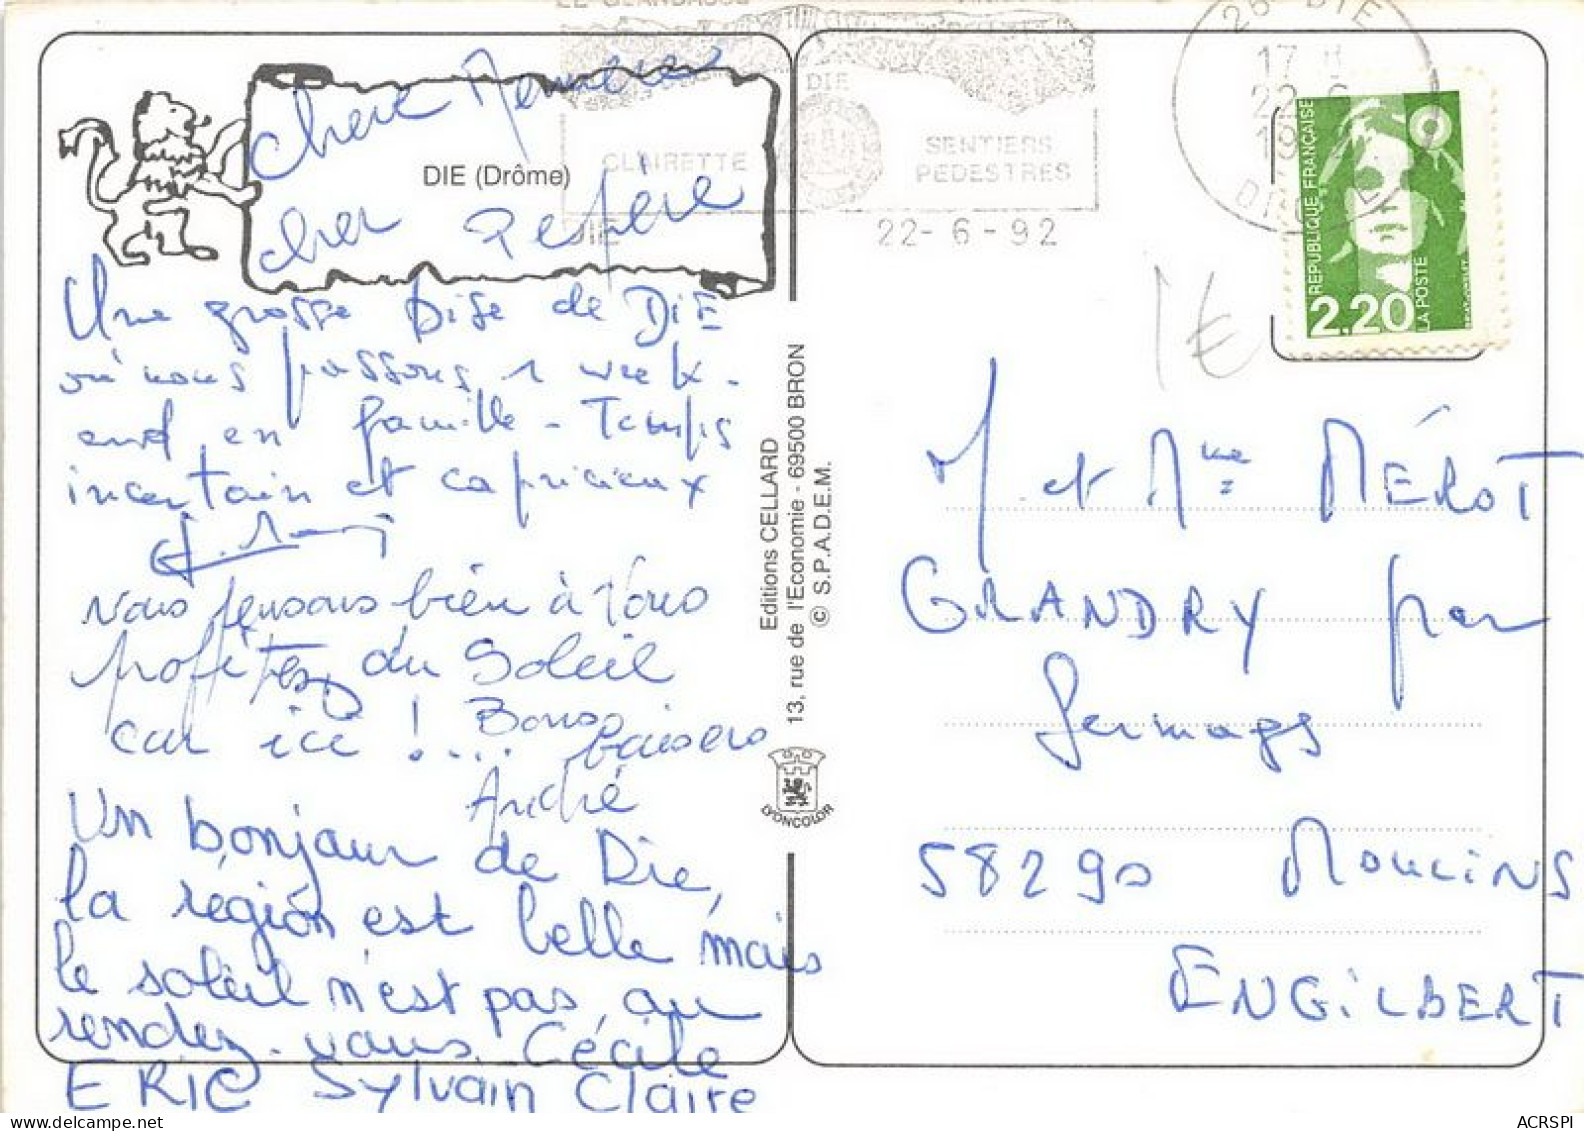 LE GLANDASSE
DIE
CLAIRETTE
DIE
SENTIERS
PEDESTRES
22-6-92
26 DIE
17 H
22-6
19
REPUBLIQUE FRANÇAISE
2,20
LA POSTE
DIE (Drôme)
Chère Mémère
cher Pépère
Une grosse bise de DIE
où nous passons 1 week-
end en famille - Temps
incertain et capricieux
Nous pensons bien à Vous
profitez du Soleil
car ici !...
Bons baisers
André
Un bonjour de Die,
la région est belle mais
le soleil n'est pas au
rendez-vous. Cécile
ERIC Sylvain Claire
Editions CELLARD
13, rue de l'Economie - 69500 BRON
© S.P.A.D.E.M.
LYONCOLOR
1€
M. et Mme MÉROT
GRANDRY par
Sermages
58290 MOULINS
ENGILBERT
ACRSPI